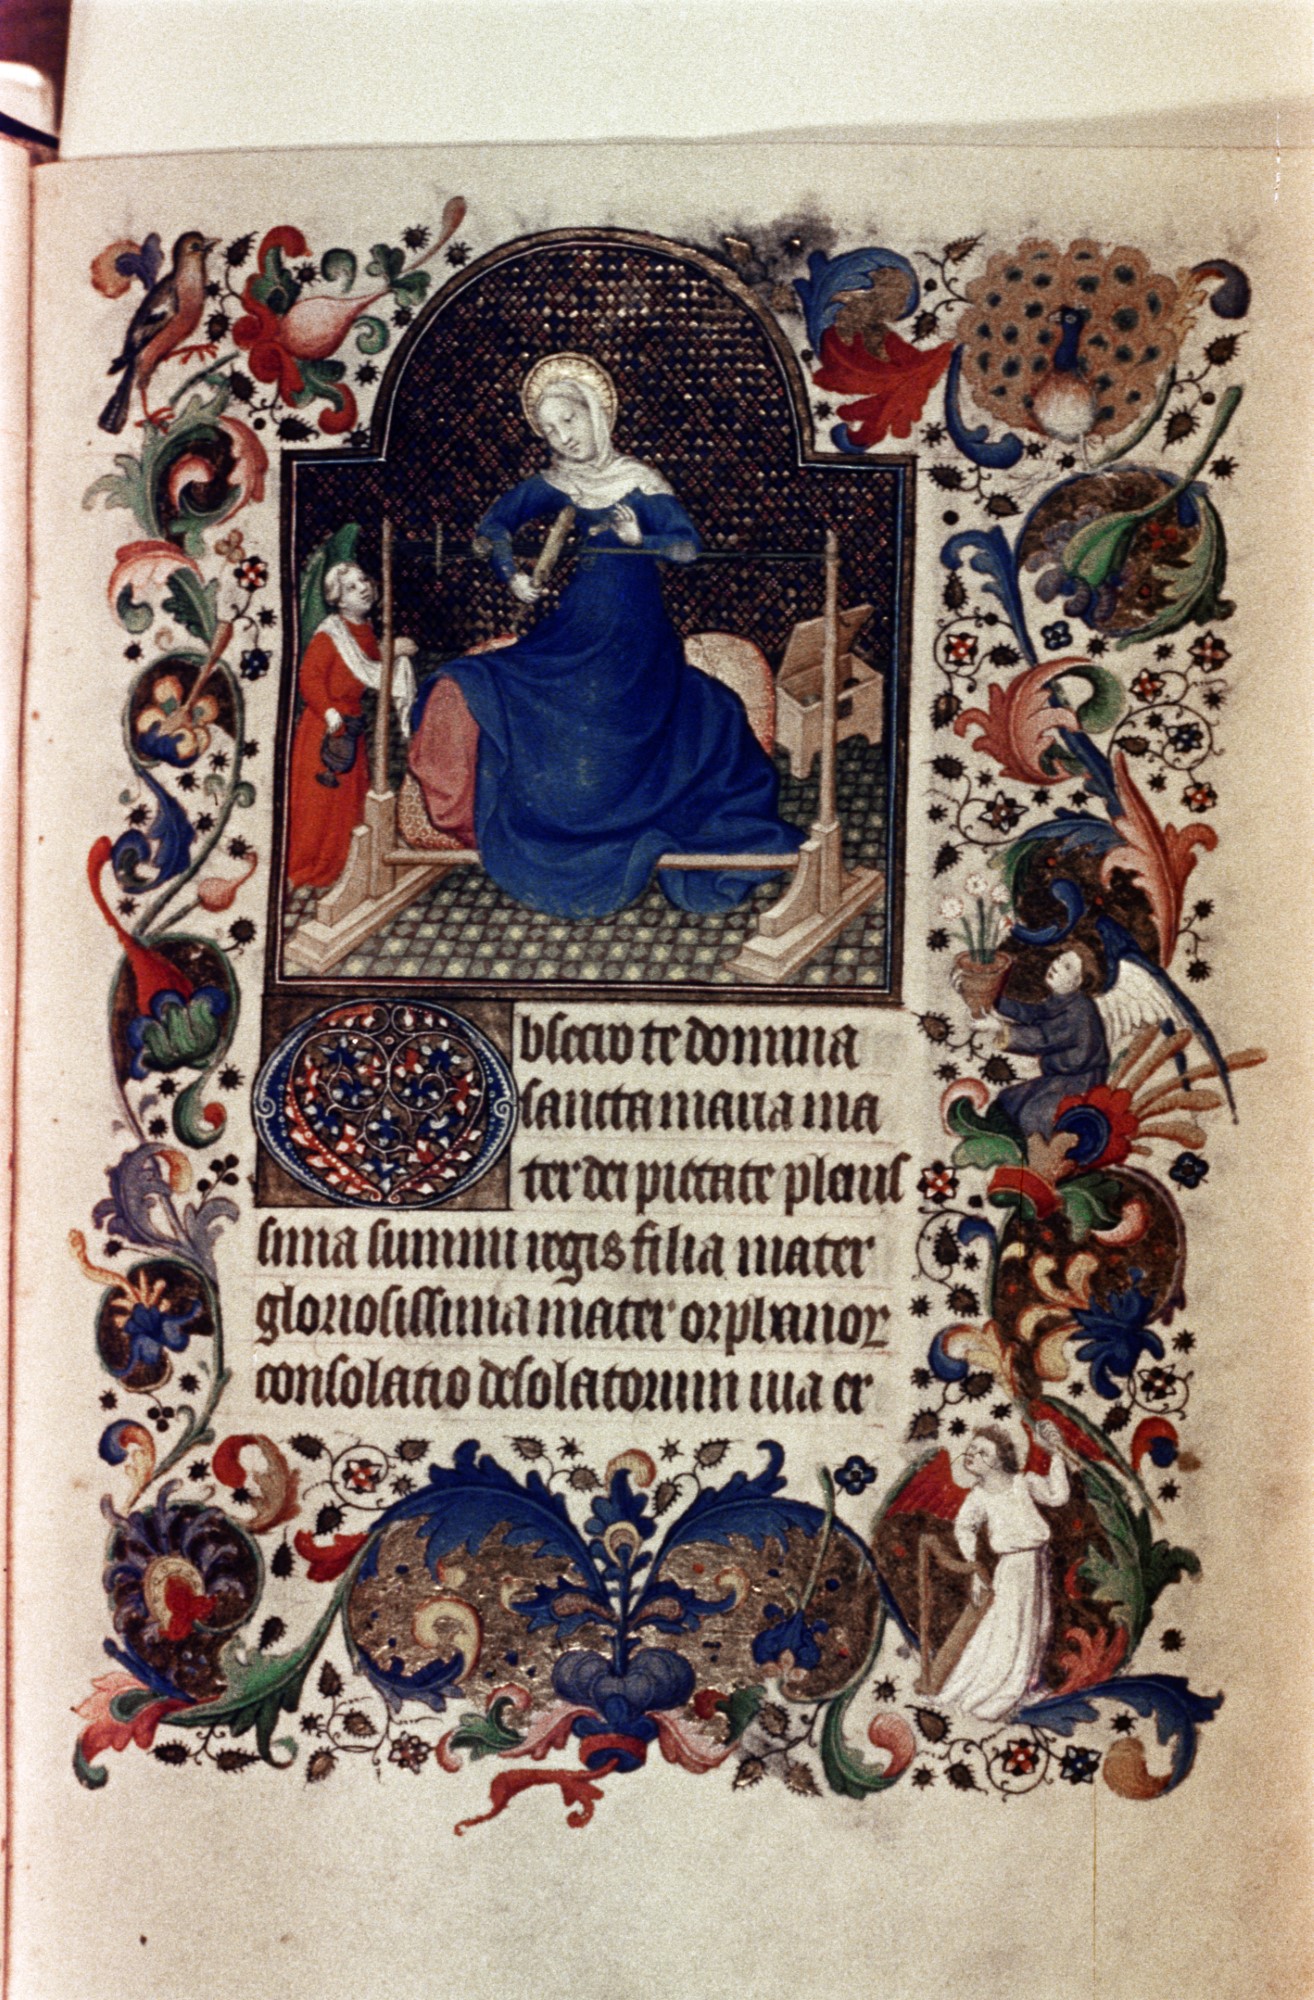 Obsecro te domina
sancta maria ma
ter dei pietate plenis
sima summi regis filia mater
gloriosissima mater orphanoꝝ
consolatio desolatorum uia er